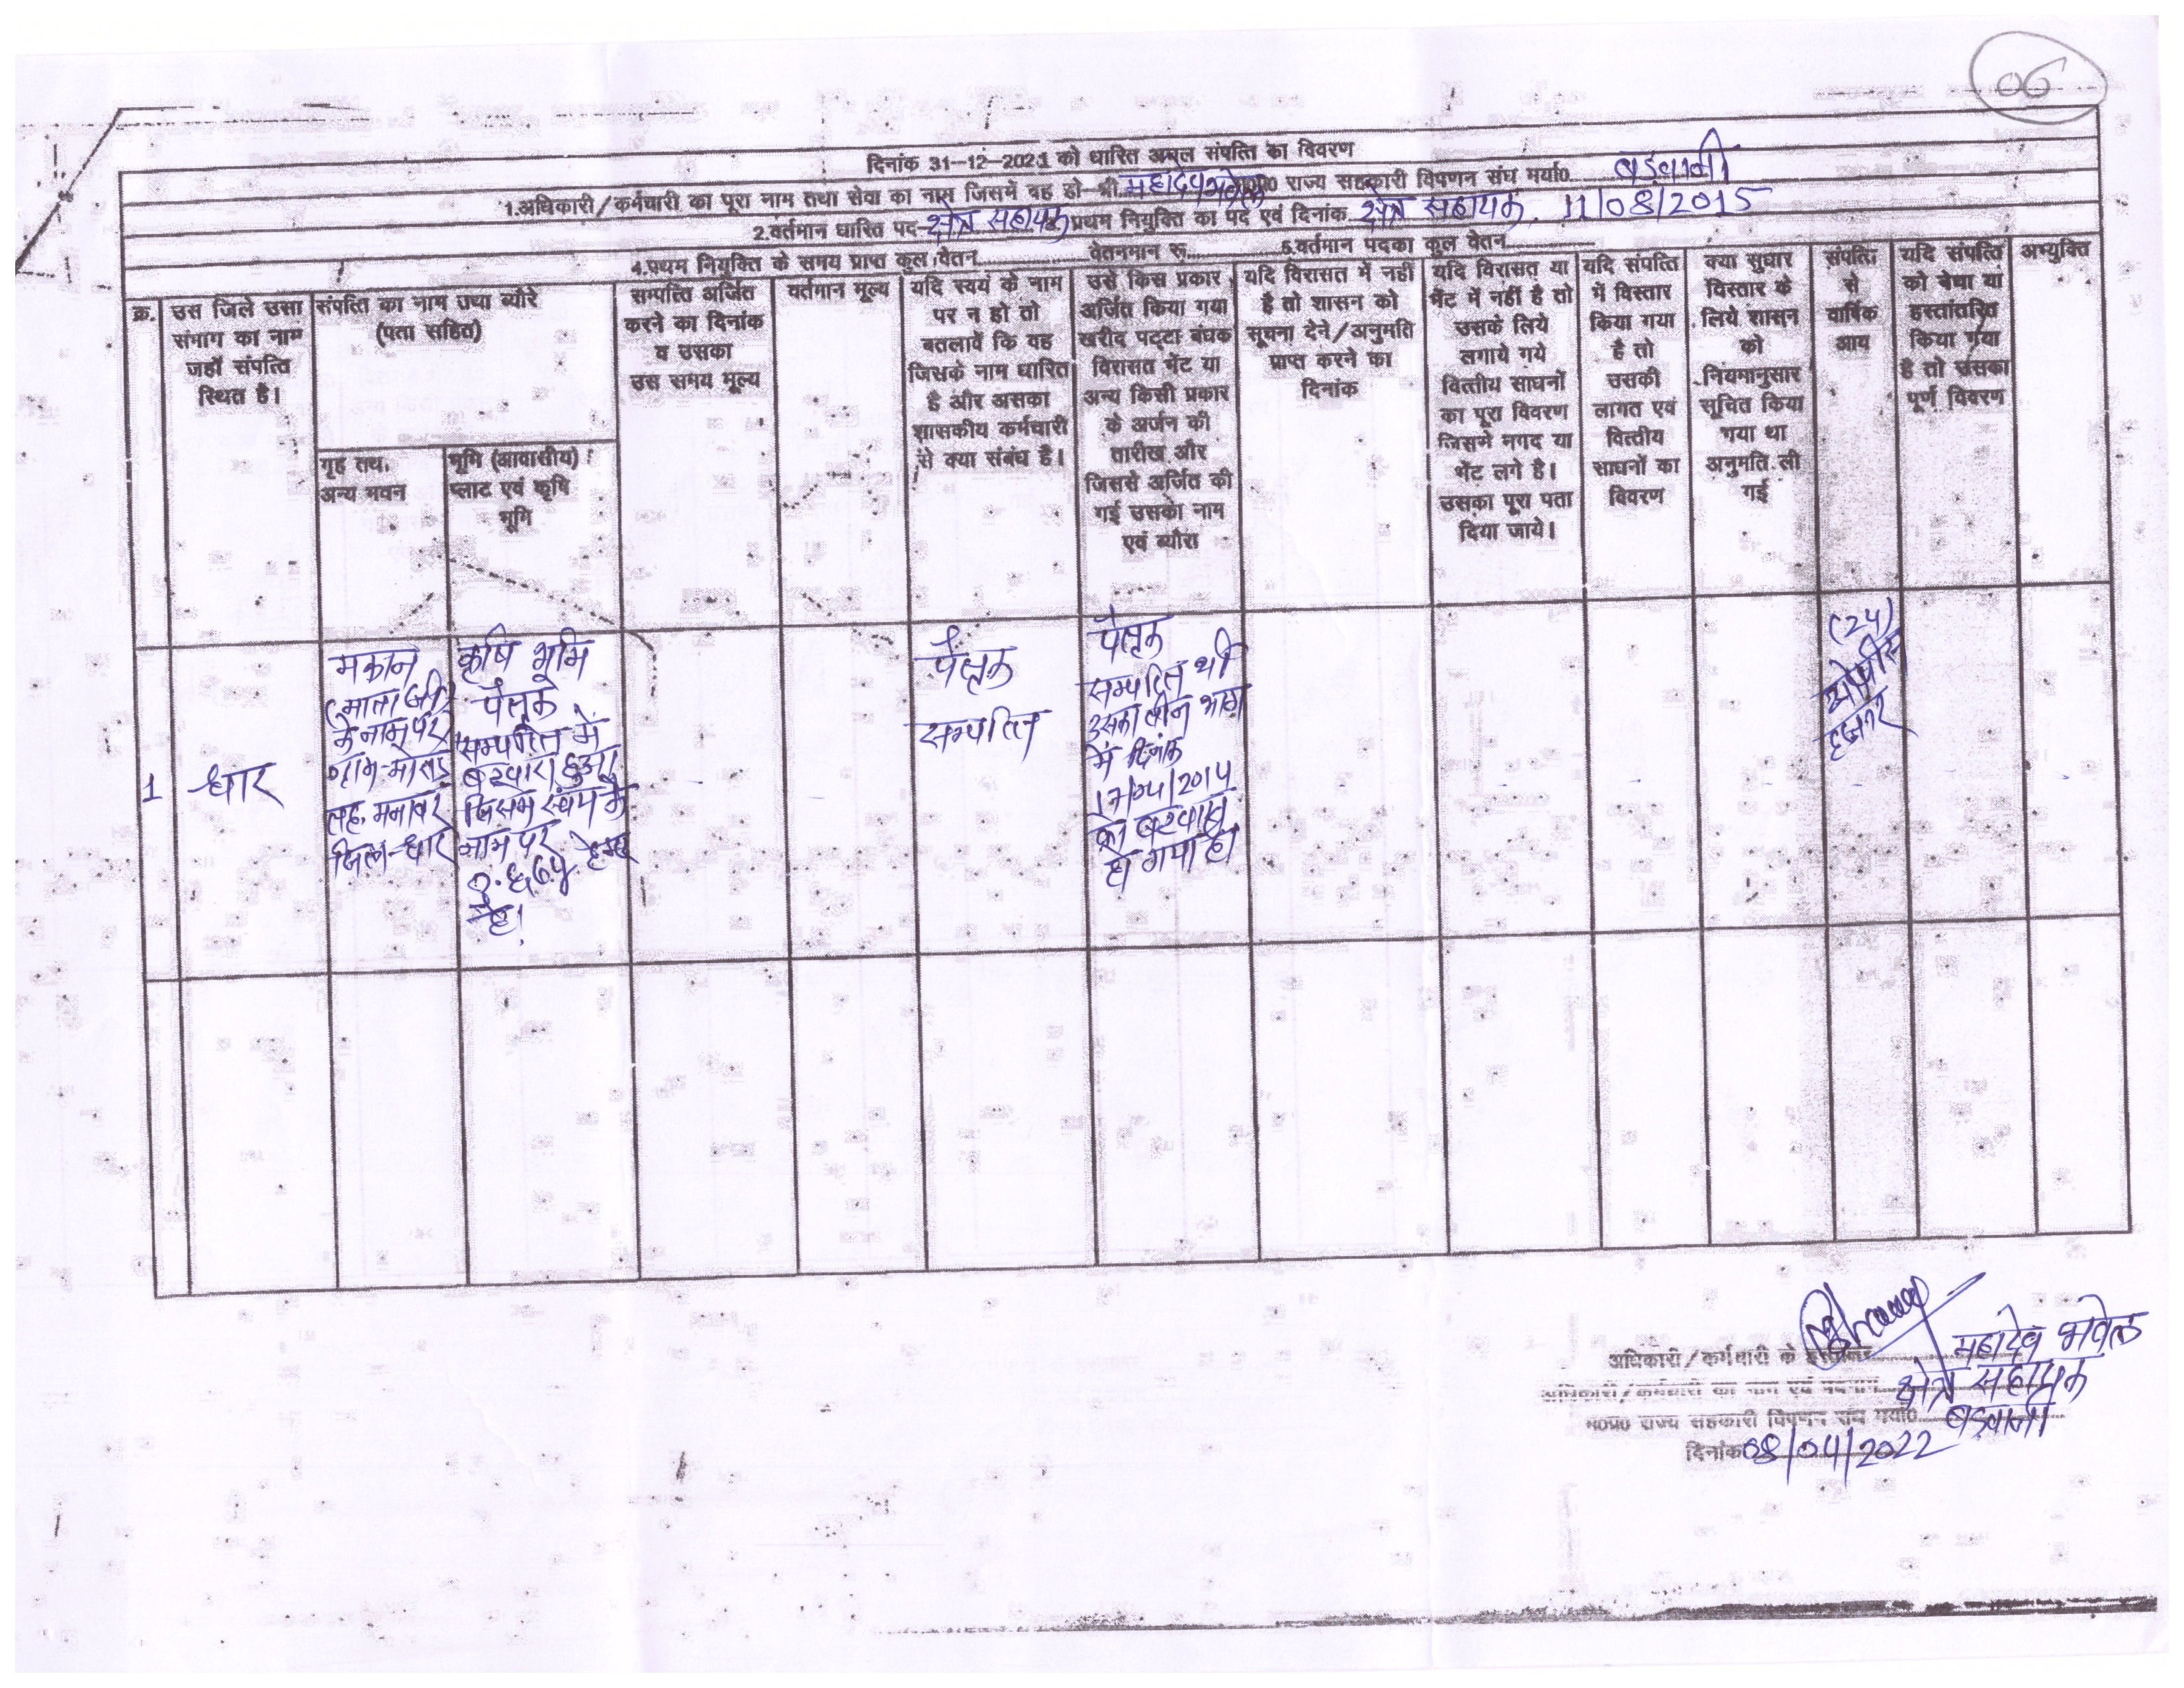 06
दिनांक 31-12-2021 को धारित अचल संपत्ति का विवरण
1.अधिकारी/कर्मचारी का पूरा नाम तथा सेवा का नाम जिसमें वह हो-श्री महादेव भवेल म0प्र0 राज्य सहकारी विपणन संघ मर्या0 बड़वानी
2.वर्तमान धारित पद-क्षेत्र सहायक प्रथम नियुक्ति का पद एवं दिनांक क्षेत्र सहायक. 11/08/2015
4.प्रथम नियुक्ति के समय प्राप्त कुल वेतन............ वेतनमान रू............ 5.वर्तमान पदका कुल वेतन............
क्र.
उस जिले उसा
संभाग का नाम
जहाँ संपत्ति
स्थित है।
संपत्ति का नाम तथा ब्यौरे
(पता सहित)
गृह तथ.
अन्य भवन
भूमि (आवासीय)
प्लाट एवं कृषि
भूमि
सम्पत्ति अर्जित
करने का दिनांक
व उसका
उस समय मूल्य
वर्तमान मूल्य
यदि स्वयं के नाम
पर न हो तो
बतलावें कि वह
जिसके नाम धारित
है और असका
शासकीय कर्मचारी
से क्या संबंध है।
उसे किस प्रकार
अर्जित किया गया
खरीद पट्टा बंधक
विरासत भेंट या
अन्य किसी प्रकार
के अर्जन की
तारीख और
जिससे अर्जित की
गई उसका नाम
एवं ब्यौरा
यदि विरासत में नहीं
है तो शासन को
सूचना देने/अनुमति
प्राप्त करने का
दिनांक
यदि विरासत या
भेंट में नहीं है तो
उसके लिये
लगाये गये
वित्तीय साधनों
का पूरा विवरण
जिसमे नगद या
भेंट लगे है।
उसका पूरा पता
दिया जाये।
यदि संपत्ति
में विस्तार
किया गया
है तो
उसकी
लागत एवं
वित्तीय
साधनों का
विवरण
क्या सुधार
विस्तार के
लिये शासन
को
नियमानुसार
सूचित किया
गया था
अनुमति ली
गई
संपत्ति
से
वार्षिक
आय
यदि संपत्ति
को बेचा या
हस्तांतरित
किया गया
है तो उसका
पूर्ण विवरण
अभ्युक्ति
1
धार
मकान
(माता जी
के नाम पर)
ग्राम-
तह. मनावर
जिला-धार
कृषि भूमि
पैतृक
सम्पत्ति में
बटवारा हुआ
जिसमें स्वंय के
नाम पर
है।
पैतृक
सम्पत्ति
पैतृक
सम्पत्ति थी
उसका तीन भाग
में दिनांक
17/04/2014
को बटवारा
हो गया है।
(24)
चोबीस
हजार
अधिकारी/कर्मचारी के हस्ताक्षर
महादेव भवेल
अधिकारी/कर्मचारी का नाम एवं पदनाम क्षेत्र सहायक
म0प्र0 राज्य सहकारी विपणन संघ मर्या0 बड़वानी
दिनांक 08/04/2022